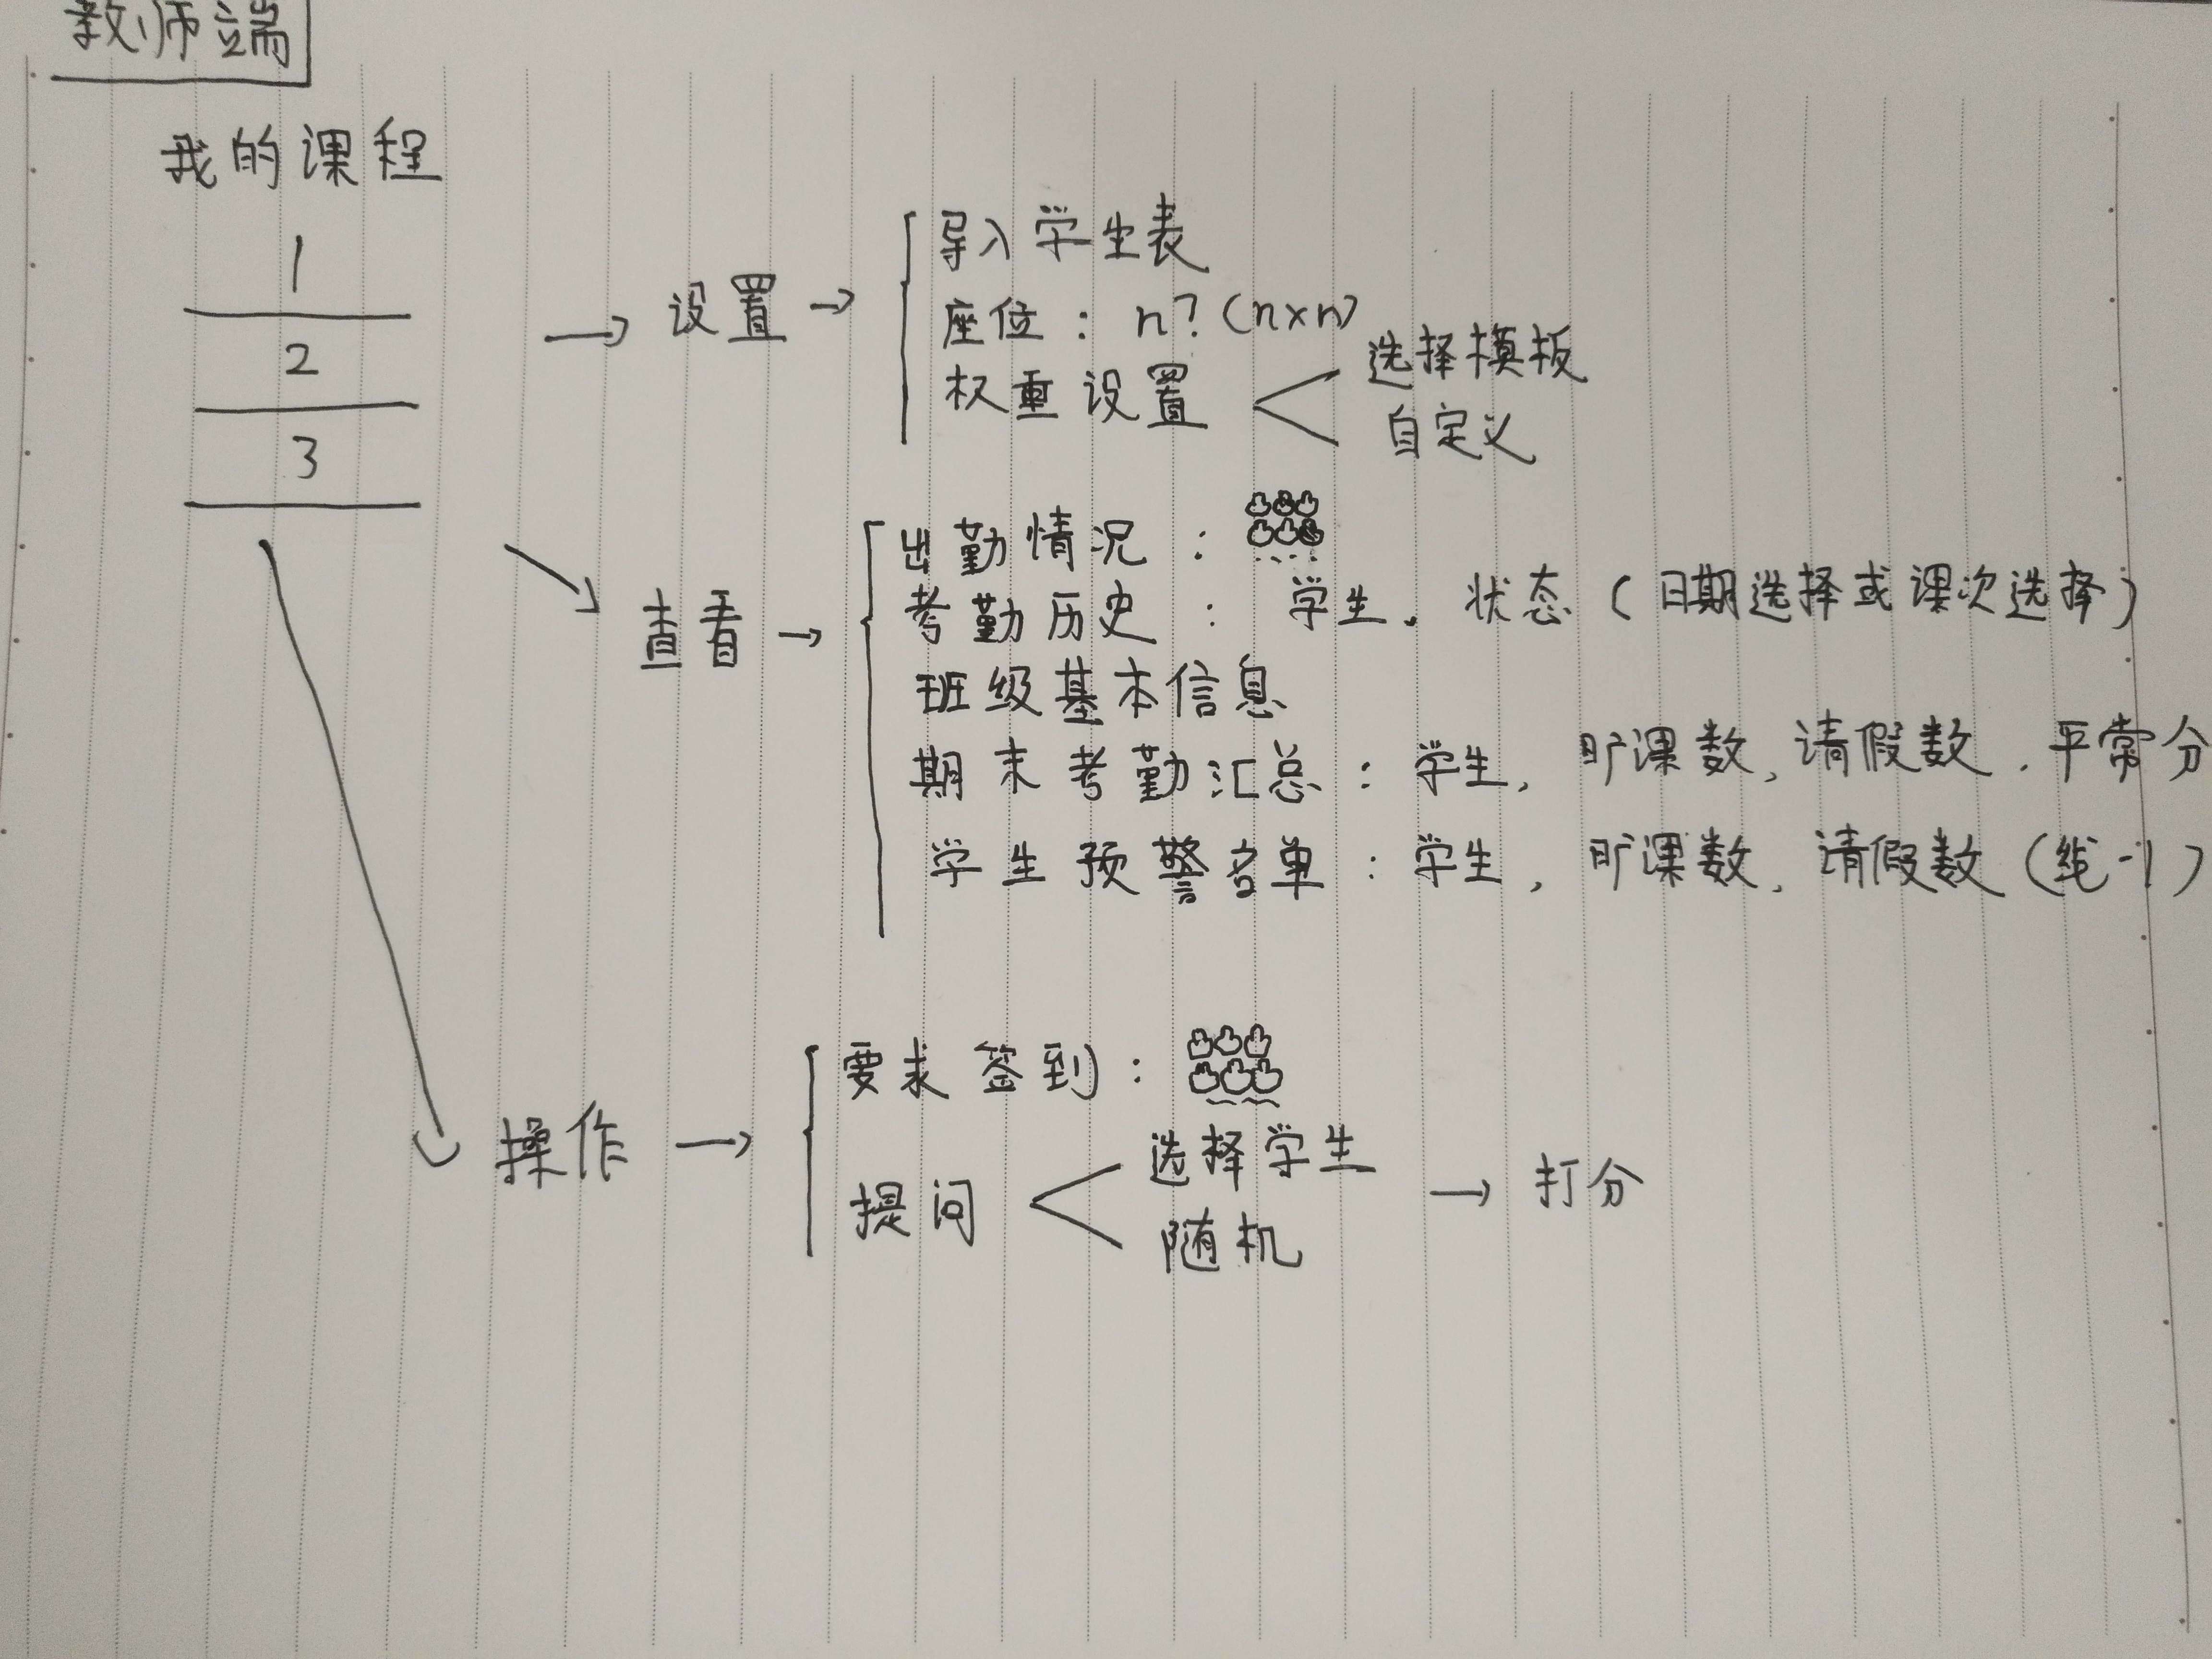 教师端
我的课程
1
2
3
→ 设置 →
导入学生表
座位：n?(n×n)
权重设置
选择模板
自定义
查看 →
出勤情况：
考勤历史：学生、状态(日期选择或课次选择)
班级基本信息
期末考勤汇总：学生, 旷课数, 请假数, 平常分
学生预警名单：学生, 旷课数, 请假数(线-1)
操作 →
要求签到：
提问
选择学生
随机
→ 打分